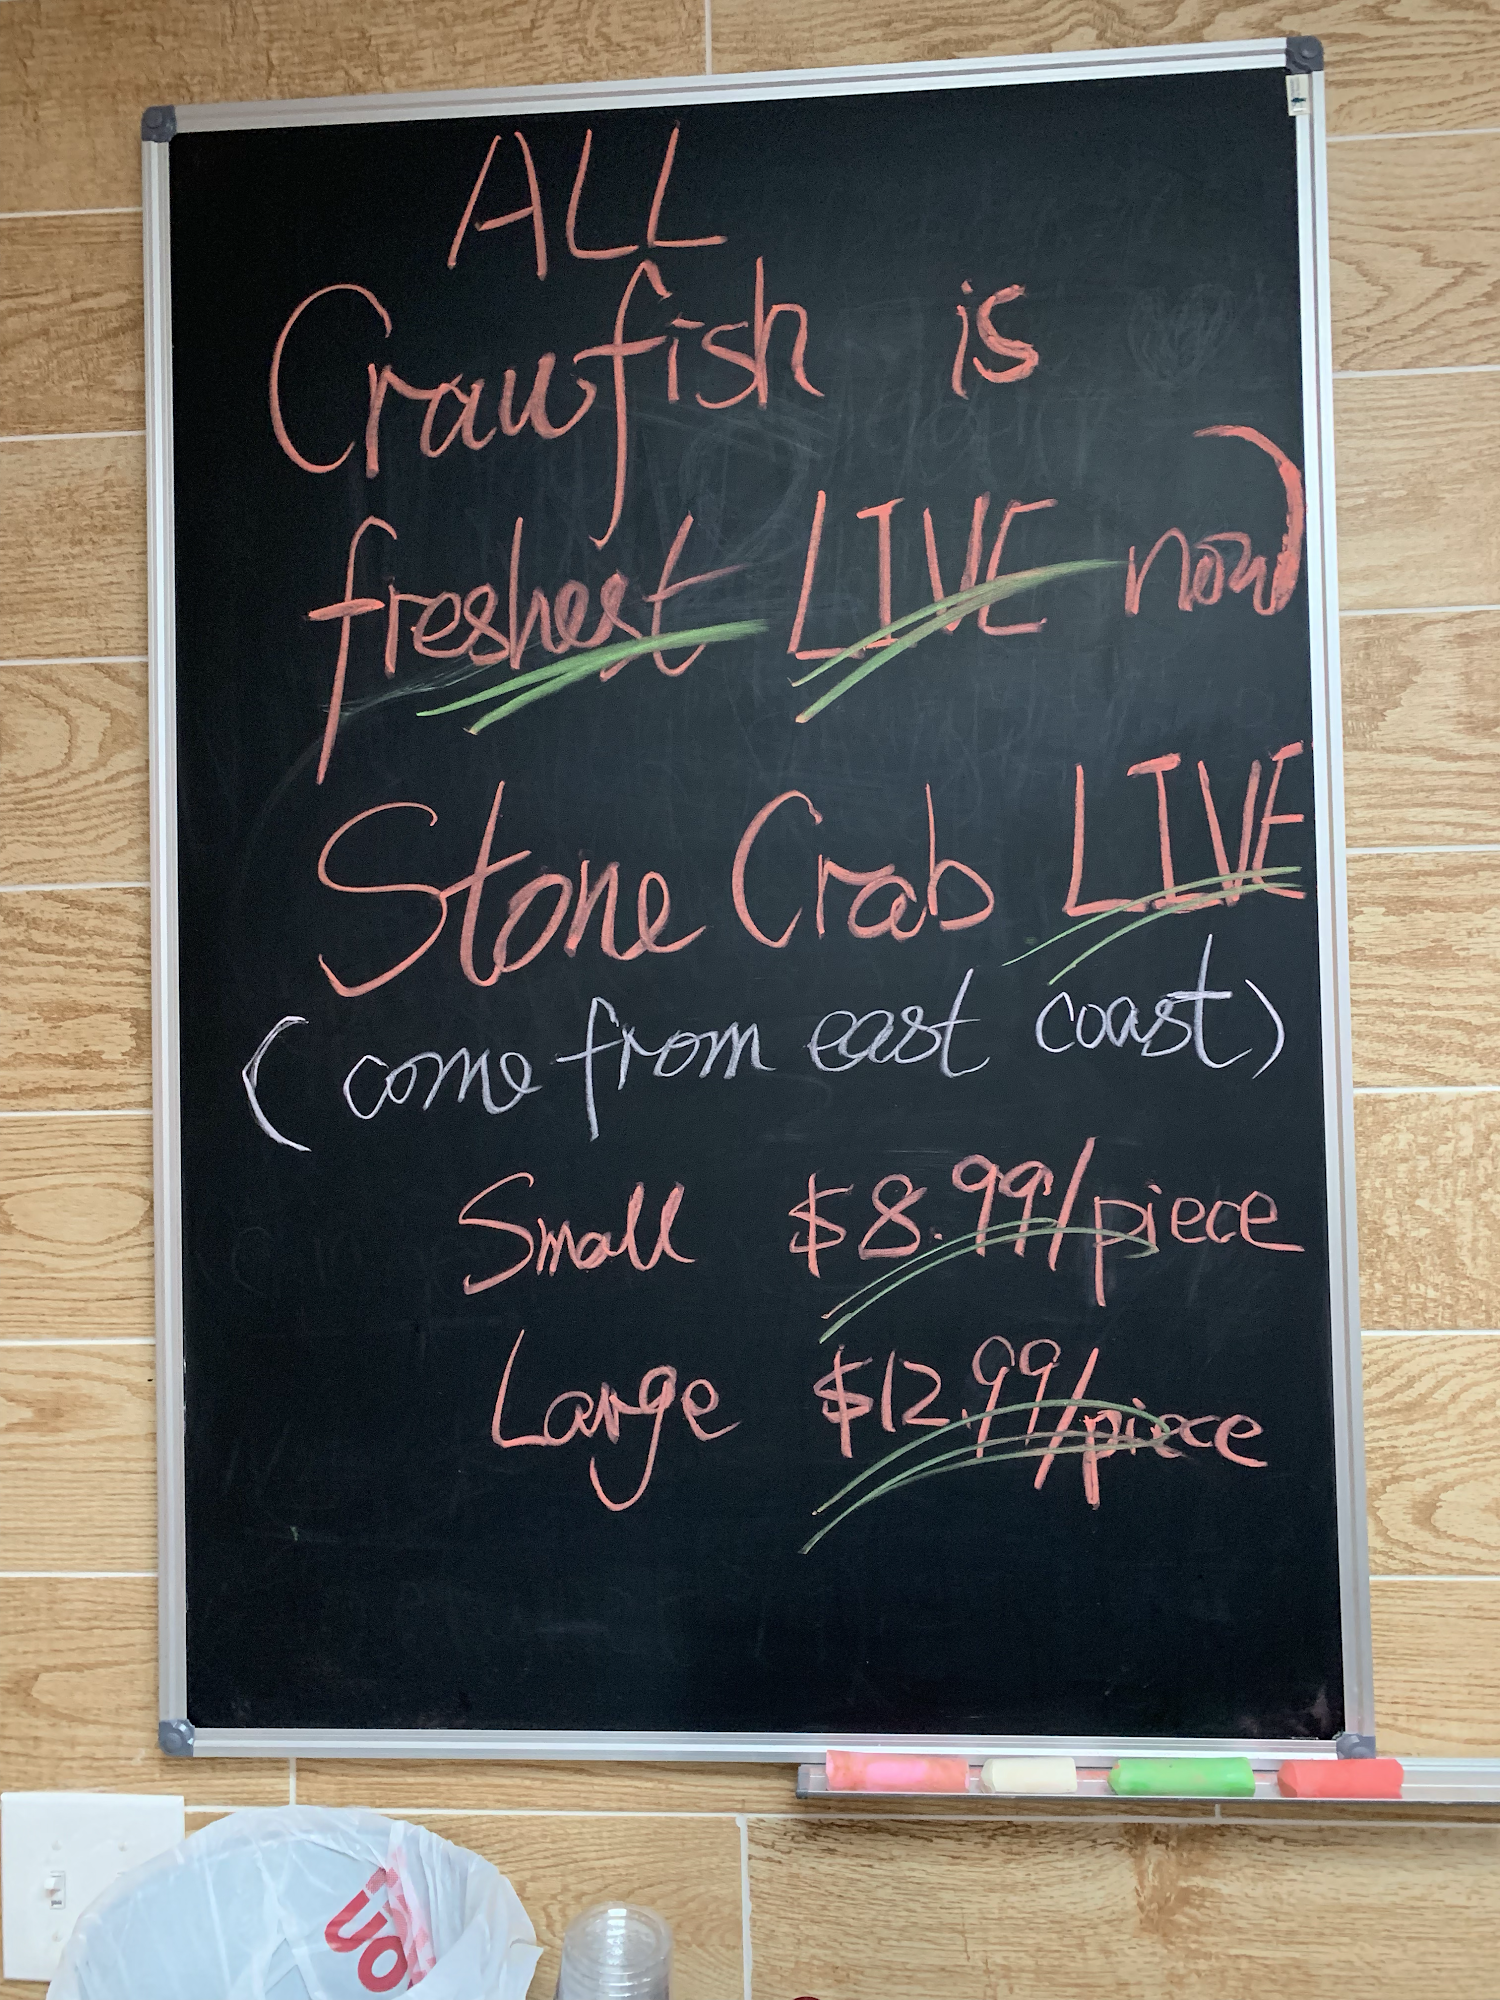 ALL
Crawfish is
freshest LIVE now
Stone Crab LIVE
(come from east coast)
Small $8.99/piece
Large $12.99/piece